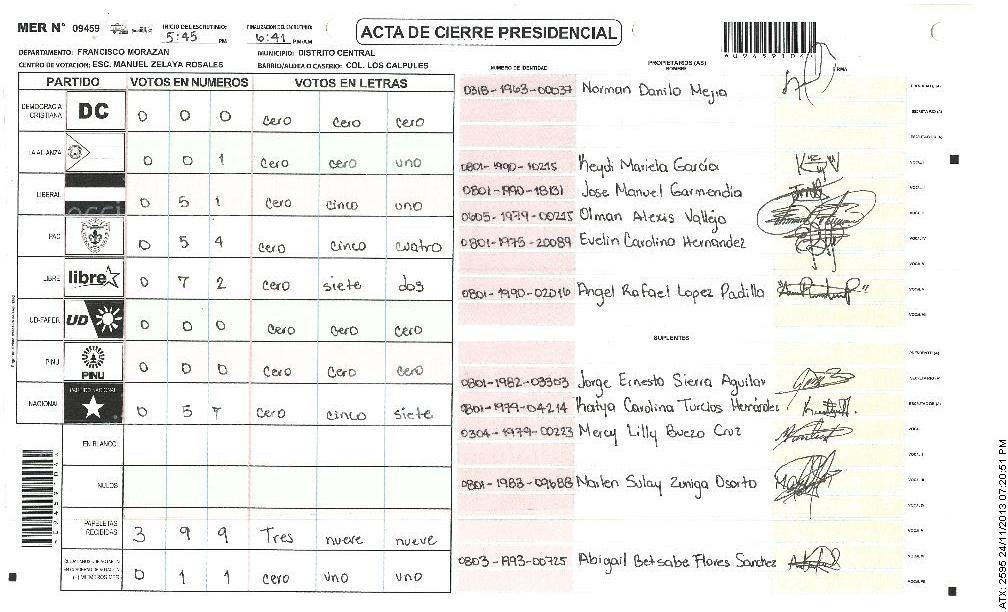 MER N° 09459
INICIO DEL ESCRUTINIO: 5:45 PM
FINALIZACION DEL ESCRUTINIO: 6:41 PM/AM
ACTA DE CIERRE PRESIDENCIAL
DEPARTAMENTO: FRANCISCO MORAZAN
MUNICIPIO: DISTRITO CENTRAL
CENTRO DE VOTACION: ESC. MANUEL ZELAYA ROSALES
BARRIO/ALDEA O CASERIO: COL. LOS CALPULES
PARTIDO VOTOS EN NUMEROS VOTOS EN LETRAS
DEMOCRACIA CRISTIANA DC 0 0 0 cero cero cero
LA ALIANZA 0 0 1 cero cero uno
LIBERAL 0 5 1 cero cinco uno
PAC 0 5 4 cero cinco cuatro
LIBRE libre 0 7 2 cero siete dos
UD-FAPER UD 0 0 0 cero cero cero
PINU PINU 0 0 0 cero cero cero
NACIONAL PARTIDO NACIONAL 0 5 7 cero cinco siete
EN BLANCO
NULOS
PAPELETAS RECIBIDAS 3 9 9 Tres nueve nueve
0 1 1 cero uno uno
NUMERO DE IDENTIDAD PROPIETARIOS (AS) NOMBRE FIRMA
0318-1963-00037 Norman Danilo Mejia
0801-1990-10215 Keydi Mariela García
0801-1990-18131 Jose Manuel Garmendia
0605-1979-00215 Olman Alexis Vallejo
0801-1975-20089 Evelin Carolina Hernandez
0801-1990-02016 Angel Rafael Lopez Padilla
SUPLENTES
0801-1982-03303 Jorge Ernesto Sierra Aguilar
0801-1979-04214 Katya Carolina Turcios Hernández
0304-1979-00223 Mercy Lilly Buezo Cruz
0801-1983-09688 Marlen Sulay Zuniga Osorto
0803-1993-00725 Abigail Betsabe Flores Sanchez
ATX: 2595 24/11/2013 07:20:51 PM